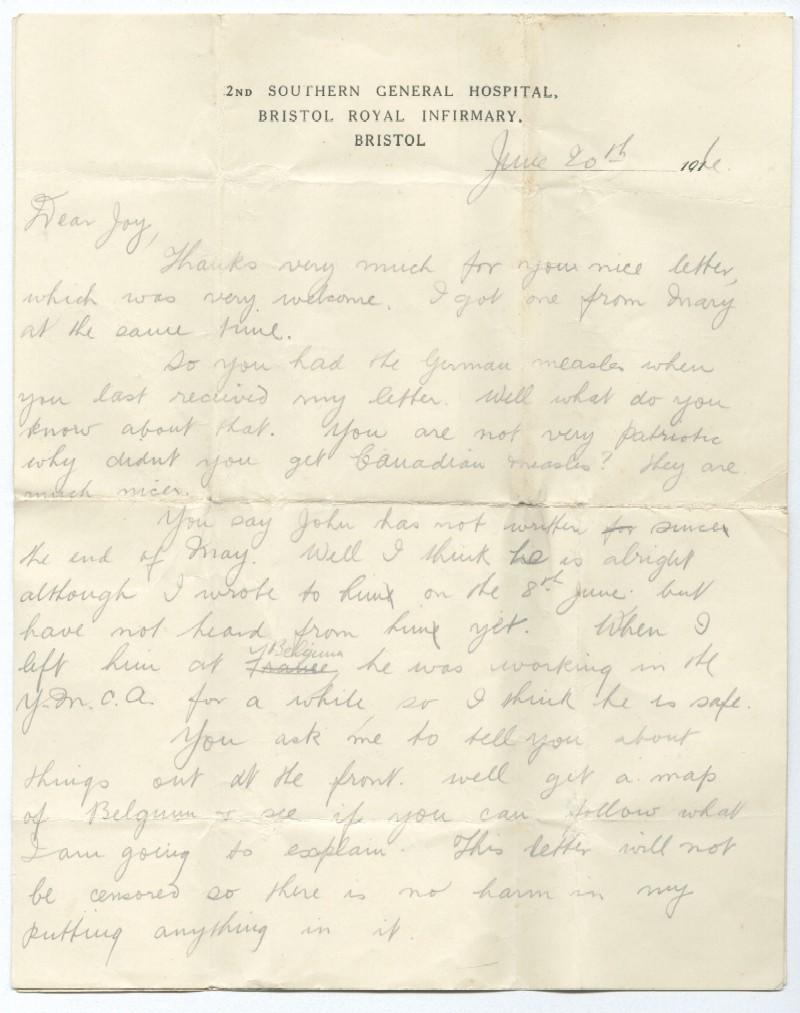 2ND SOUTHERN GENERAL HOSPITAL,
BRISTOL ROYAL INFIRMARY,
BRISTOL
June 20th 1916.
Dear Joy,
Thanks very much for your nice letter,
which was very welcome. I got one from Mary
at the same time.
So you had the German measles when
you last received my letter. Well what do you
know about that. You are not very patriotic
why didn't you get Canadian measles? They are
much nicer.
You say John has not written for since
the end of May. Well I think he is alright
although I wrote to him on the 8th June but
have not heard from him yet. When I
left him at France Belgium he was working in the
Y.M.C.A. for a while so I think he is safe.
You ask me to tell you about
things out at the front. Well get a map
of Belgium & see if you can follow what
I am going to explain. This letter will not
be censored so there is no harm in my
putting anything in it.